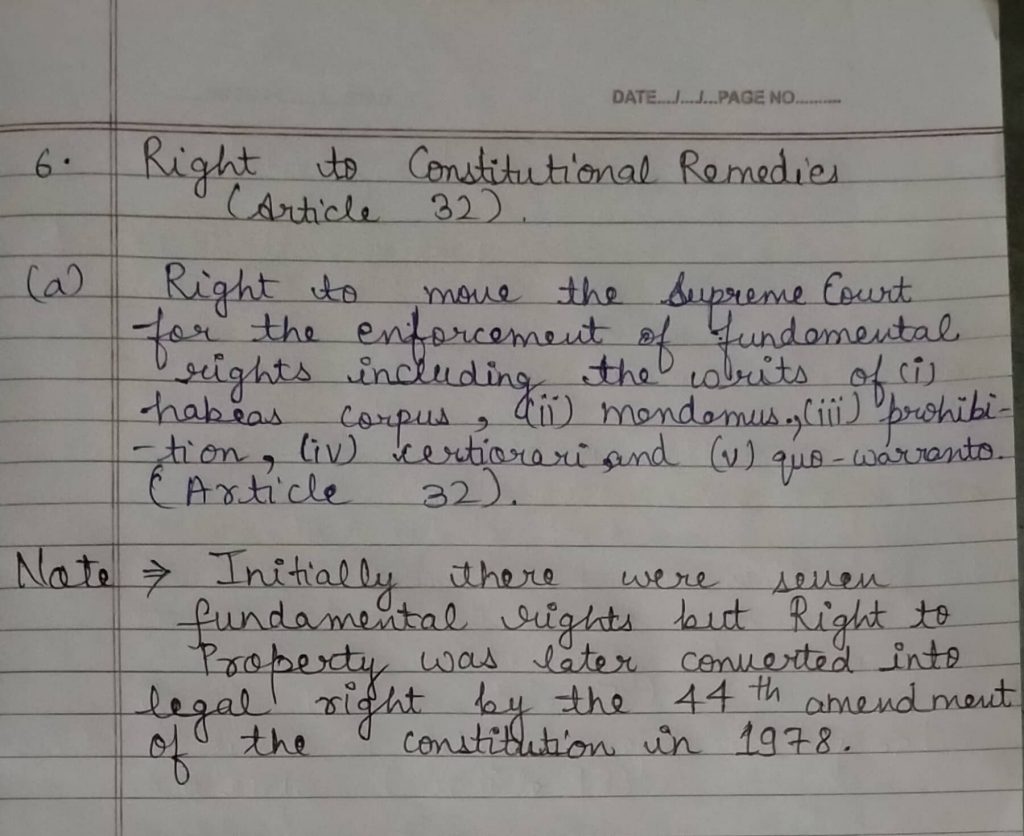 DATE.../.../...PAGE NO..........
6. Right to Constitutional Remedies
(Article 32).
(a) Right to move the Supreme Court
for the enforcement of fundamental
rights including the writs of (i)
habeas corpus, (ii) mandamus, (iii) prohibi-
-tion, (iv) certiorari and (v) quo-warranto.
(Article 32).
Note ⇒ Initially there were seven
fundamental rights but Right to
Property was later converted into
legal right by the 44th amendment
of the constitution in 1978.